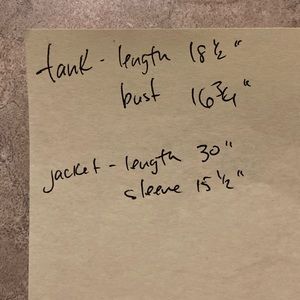 tank - length 18 1/2"
bust 16 3/4"
jacket - length 30"
sleeve 15 1/2"